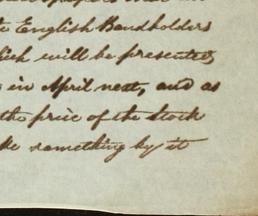 English Bondholders
will be presented
in April next, and as
the price of the stock
something by it